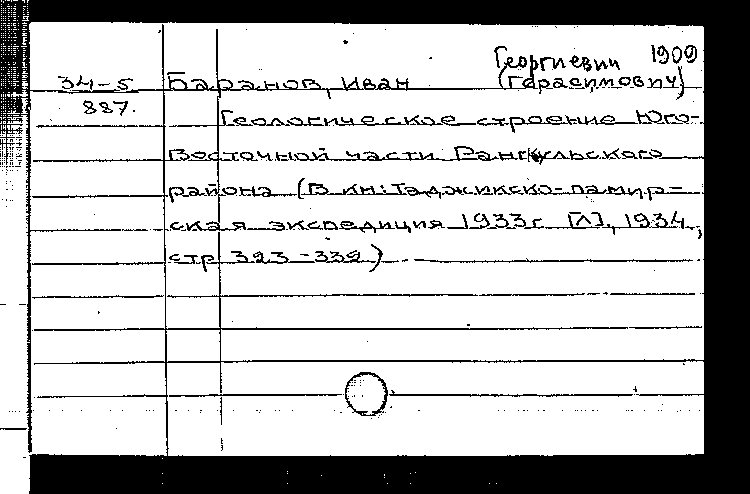 Георгиевич 1909
34-5 Баранов, Иван (Герасимович)
887. Геологическое строение Юго-
Восточной части Рангкульского
района (В кн: Таджикско-памир-
ская экспедиция 1933г [Л]., 1934,
стр 323-332)